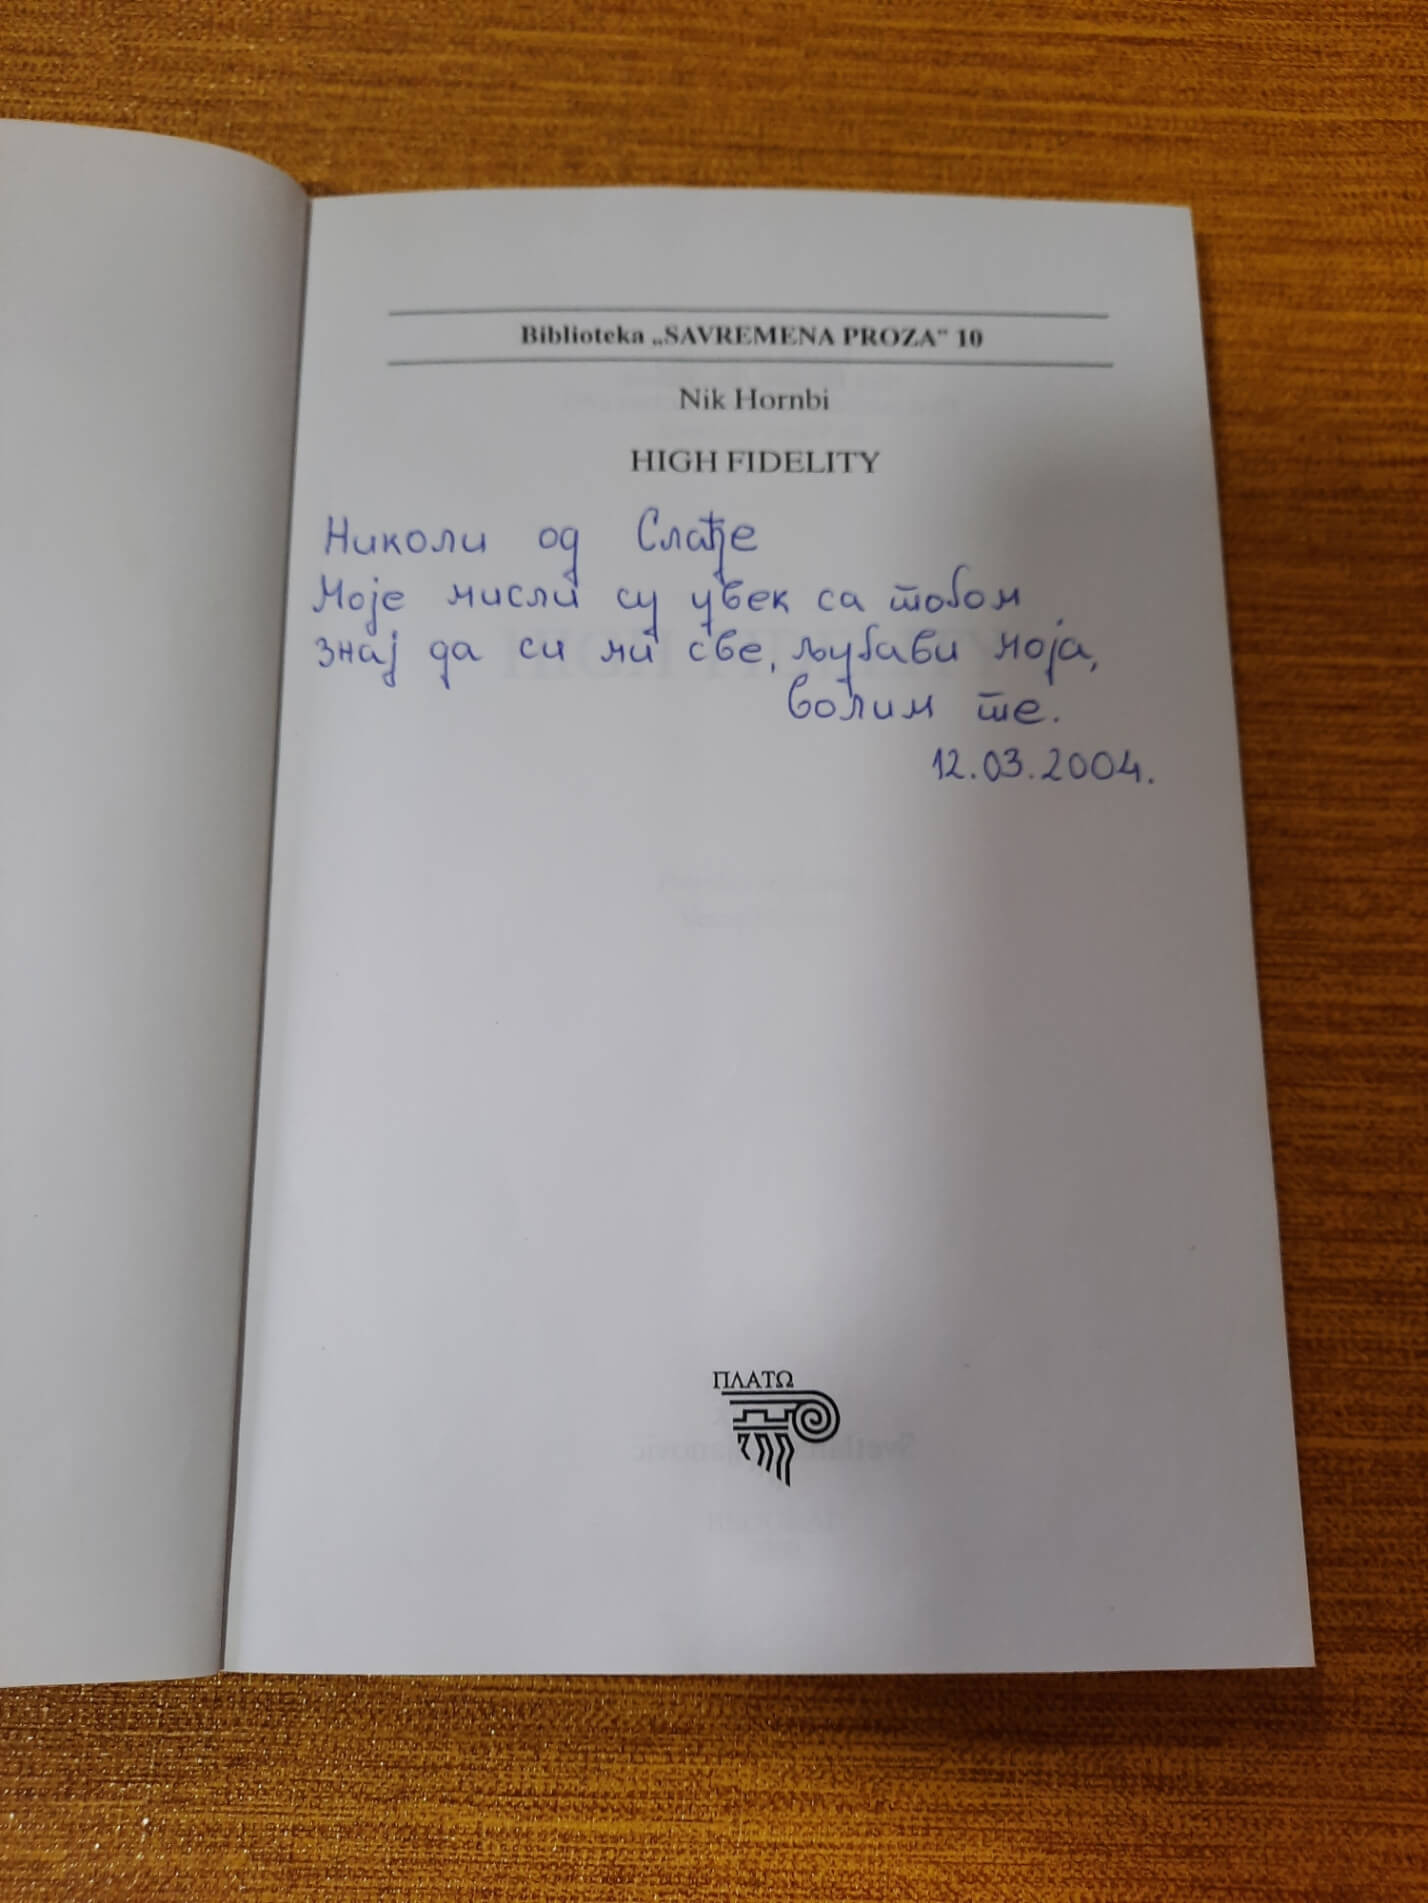 Biblioteka „SAVREMENA PROZA“ 10
Nik Hornbi
HIGH FIDELITY
Николи од Слађе
Моје мисли су увек са тобом
знај да си ми све, љубави моја,
волим те.
12.03.2004.
ΠΛΑΤΩ